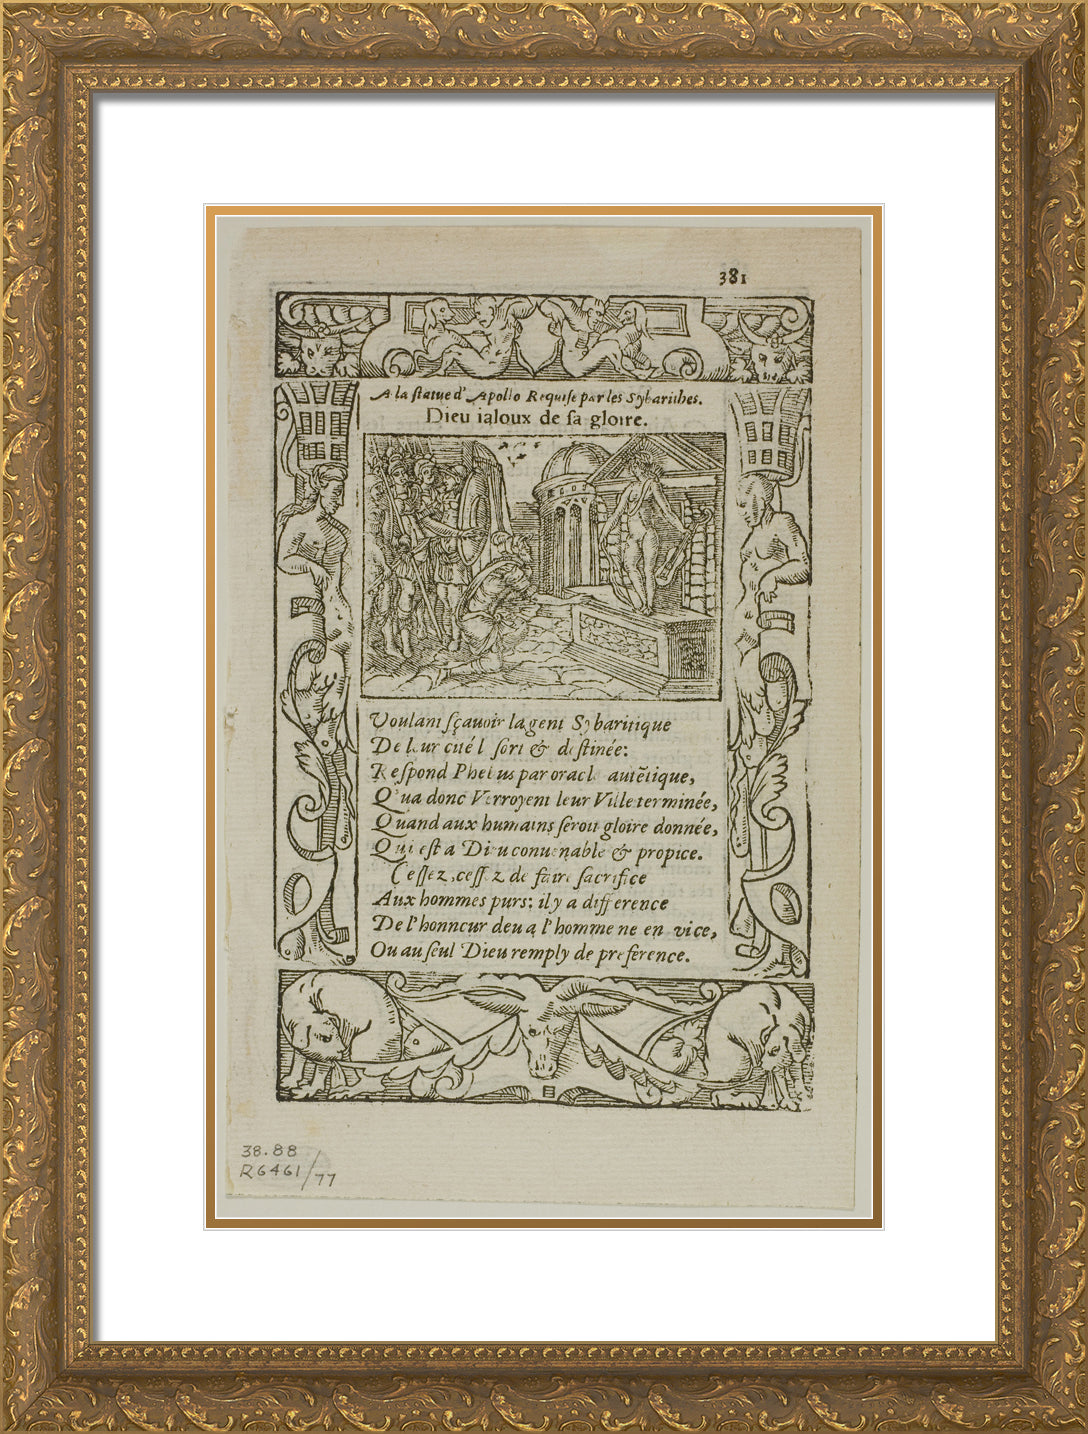 381
A la ſtatue d'Apollo Requiſe par les Sybarithes.
Dieu ialoux de ſa gloire.
Voulant ſçauoir la gent Sybaritique
De leur cité l ſort & deſtinée:
Reſpond Phebus par oracle autẽtique,
Qu'a donc Verroyent leur Ville terminée,
Quand aux humains ſeroit gloire donnée,
Qui eſt a Dieu conuenable & propice.
Ceſſez, ceſſez de faire ſacrifice
Aux hommes purs: il y a difference
De l'honneur deu a l'homme ne en vice,
Ou au ſeul Dieu remply de preference.
38.88
R6461/77